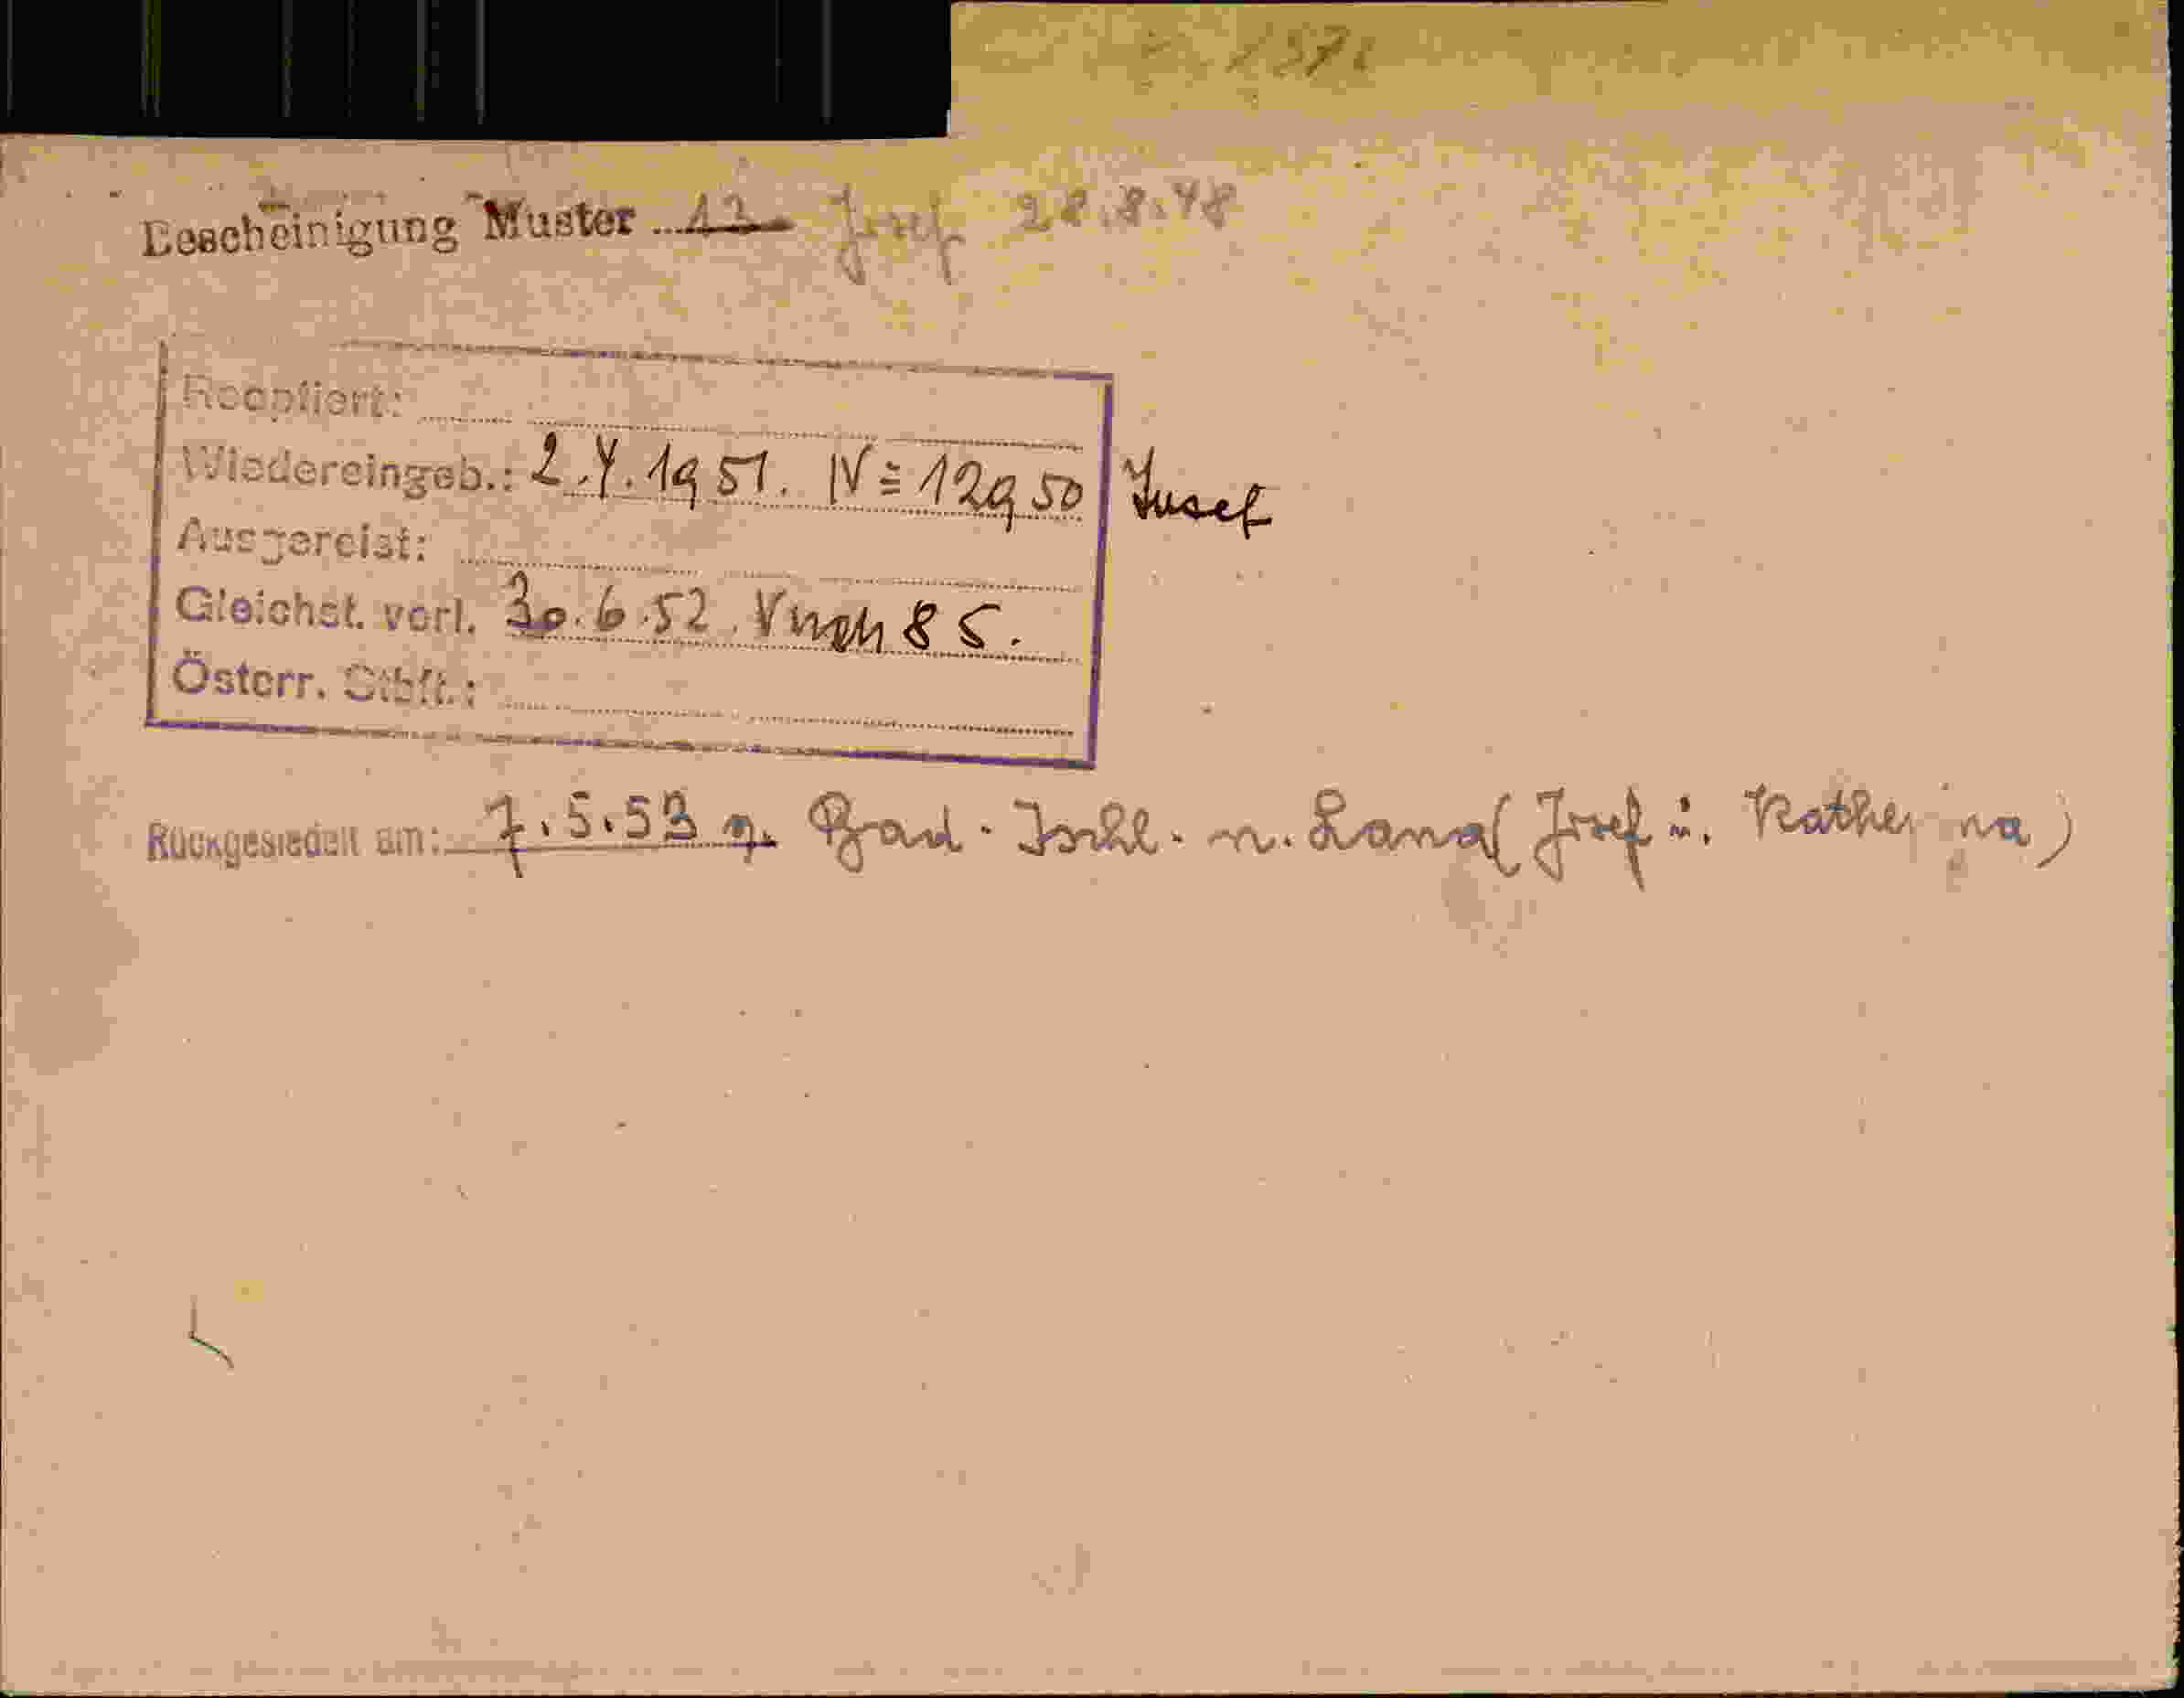 Bescheinigung Muster 13 Josef 28.8.48
Reoptiert:
Wiedereingeb.: 2.4.1951. IV = 12950 Josef
Ausgereist:
Gleichst. verl. 30.6.52. 85.
Österr. Stbft.:
Rückgesiedelt am: 7.5.53 v. Bad-Ischl. n. Lana (Josef u. Katherina)